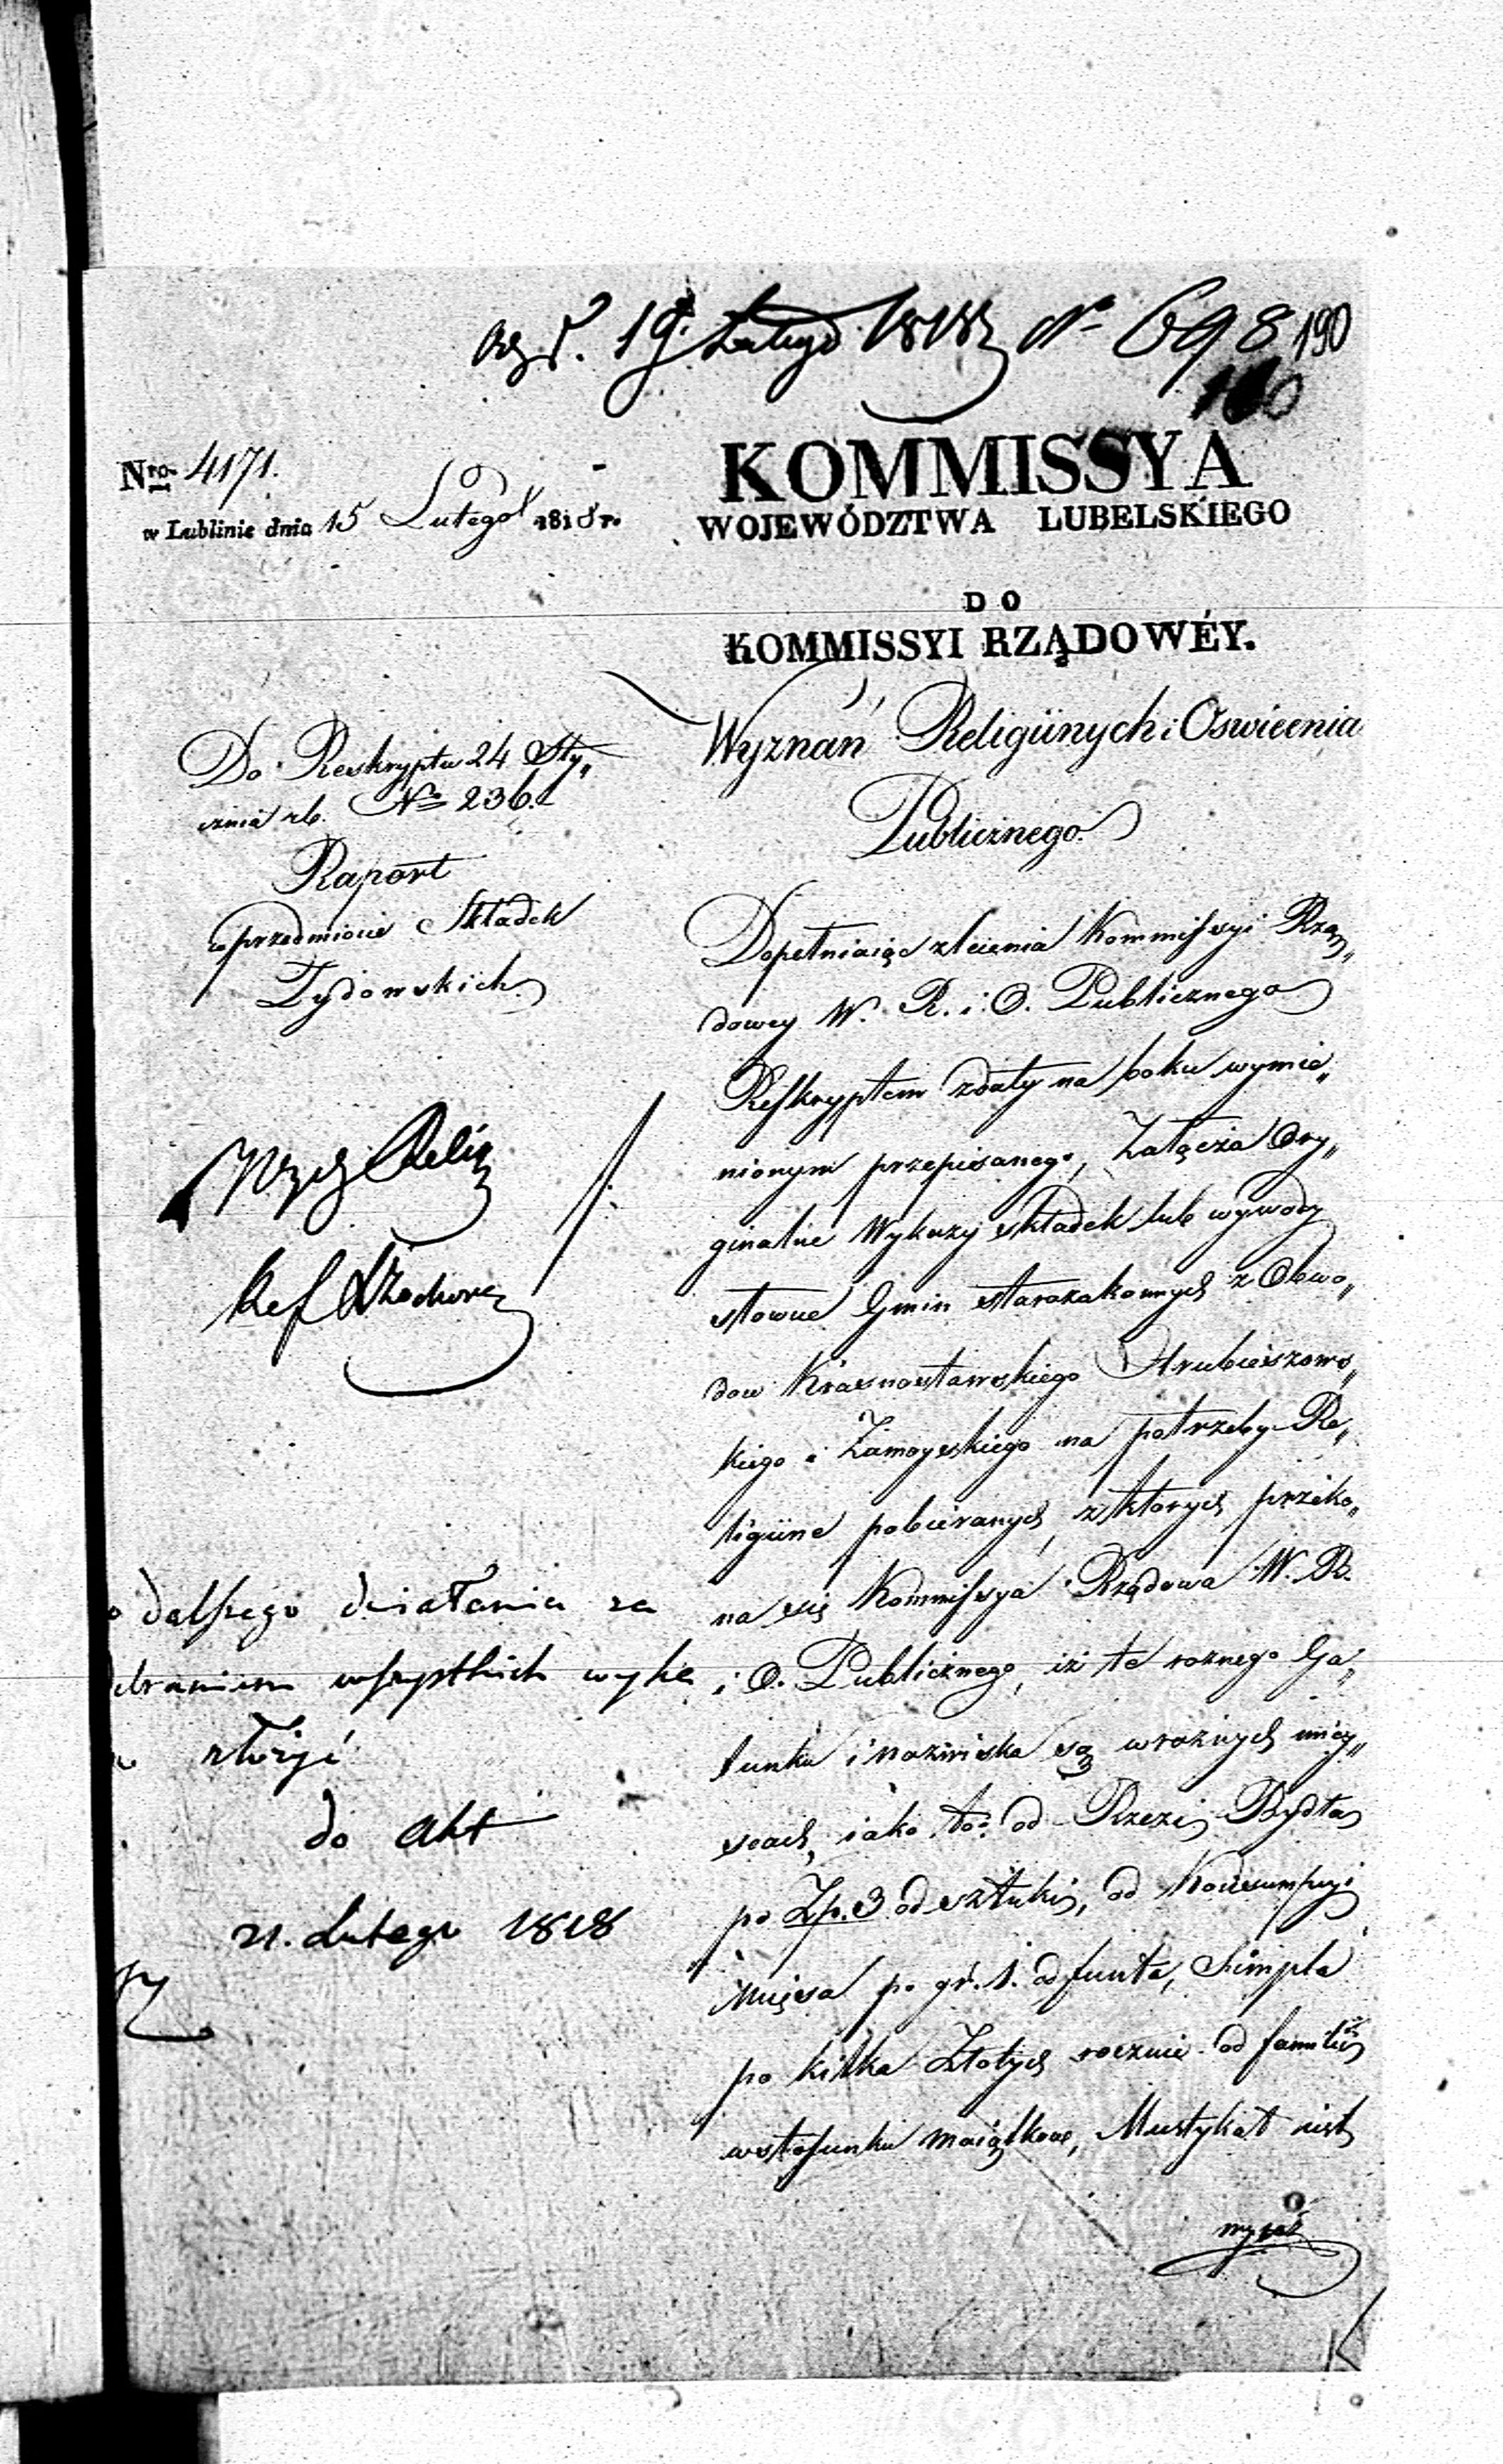 19. Lutego 1818 N 698 190
Nro 4171.
w Lublinie dnia 15 Lutego 1818 r.
KOMMISSYA
WOJEWÓDZTWA LUBELSKIEGO
DO
KOMMISSYI RZĄDOWÉY.
Wyznań Religiinych i Oswiecenia
Publicznego
Do Reskryptu 24 Sty„
cznia rb. No 236.
Raport
w przedmiocie Składek
Żydowskich
Dopełniaiąc zlecenia Kommissyi Rzą„
dowey W. R. i O. Publicznego
Reskryptem z daty na boku wymie„
nionym przepisanego, Załącza Ory„
ginalne Wykazy składek lub wywody
słowne Gmin starozakonnych z Obwo„
dow Krasnostawskiego Hrubieszows„
kiego i Zamoyskiego na potrzeby Re„
ligiine pobieranych, z ktorych przeko„
na się Kommissya Rządowa W. R.
i O. Publicznego, iż te rożnego Ga„
tunku i nazwiska są w rożnych miey„
scach, iako to: od Rzezi Bydła
po Zp. 3 od sztuki, od Konsumpcyi
Mięsa po gr. 1. od funta, Simpla
po kilka Złotych rocznie od familii
w stosunku maiątkow, Mustykat iest
dalszego działania za
wszystkich wyka
złożyć
do akt
21. Lutego 1818